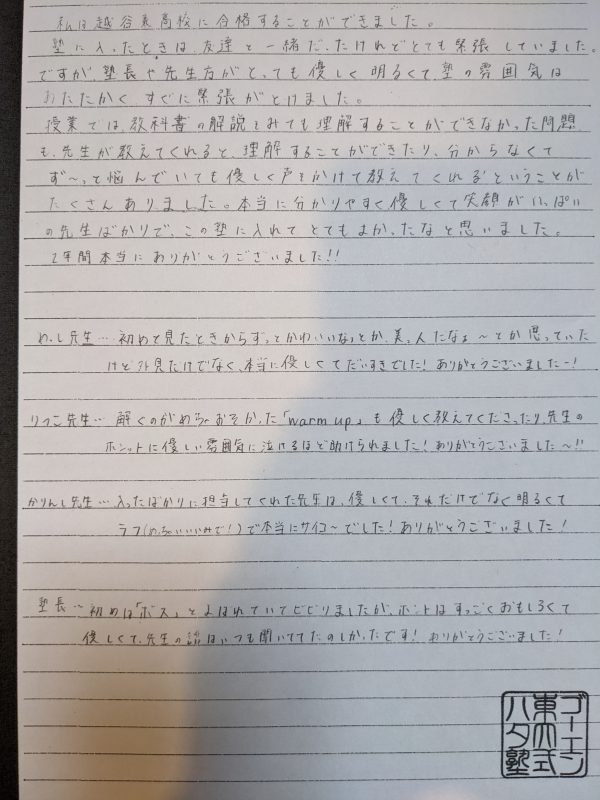 私は越谷東高校に合格することができました。
塾に入ったときは、友達と一緒だったけれどとても緊張していました。
ですが、塾長や先生方がとっても優しく明るくて、塾の雰囲気は
あたたかく、すぐに緊張がとけました。
授業では、教科書の解説をみても理解することができなかった問題
も、先生が教えてくれると、理解することができたり、分からなくて
ず〜っと悩んでいても優しく声をかけて教えてくれるということが
たくさんありました。本当に分かりやすく優しくて笑顔がいっぱい
の先生ばかりで、この塾に入れてとてもよかったなと思いました。
2年間本当にありがとうございました!!
先生…初めて見たときからずっとかわいいなっとか、美人だなぁ〜とか思っていた
けど外見だけでなく、本当に優しくてだいすきでした!ありがとうございましたー!
りつこ先生…解くのがめちゃおそかった「warm up」も優しく教えてくださったり、先生の
ホントに優しい雰囲気に泣けるほど助けられました!ありがとうございました〜!!
かりんし先生…入ったばかりに担当してくれた先生は、優しくて、それだけでなく明るくて
ラフ(めっちゃいいいみで!)で本当にサイコ〜でした!ありがとうございました!
塾長…初めは「ボス」とよばれていてビビりましたが、ホントはすっごくおもしろくて
優しくて、先生の話はいつも聞いててたのしかったです!ありがとうございました!
ゴーエン
東大式
ハタ塾